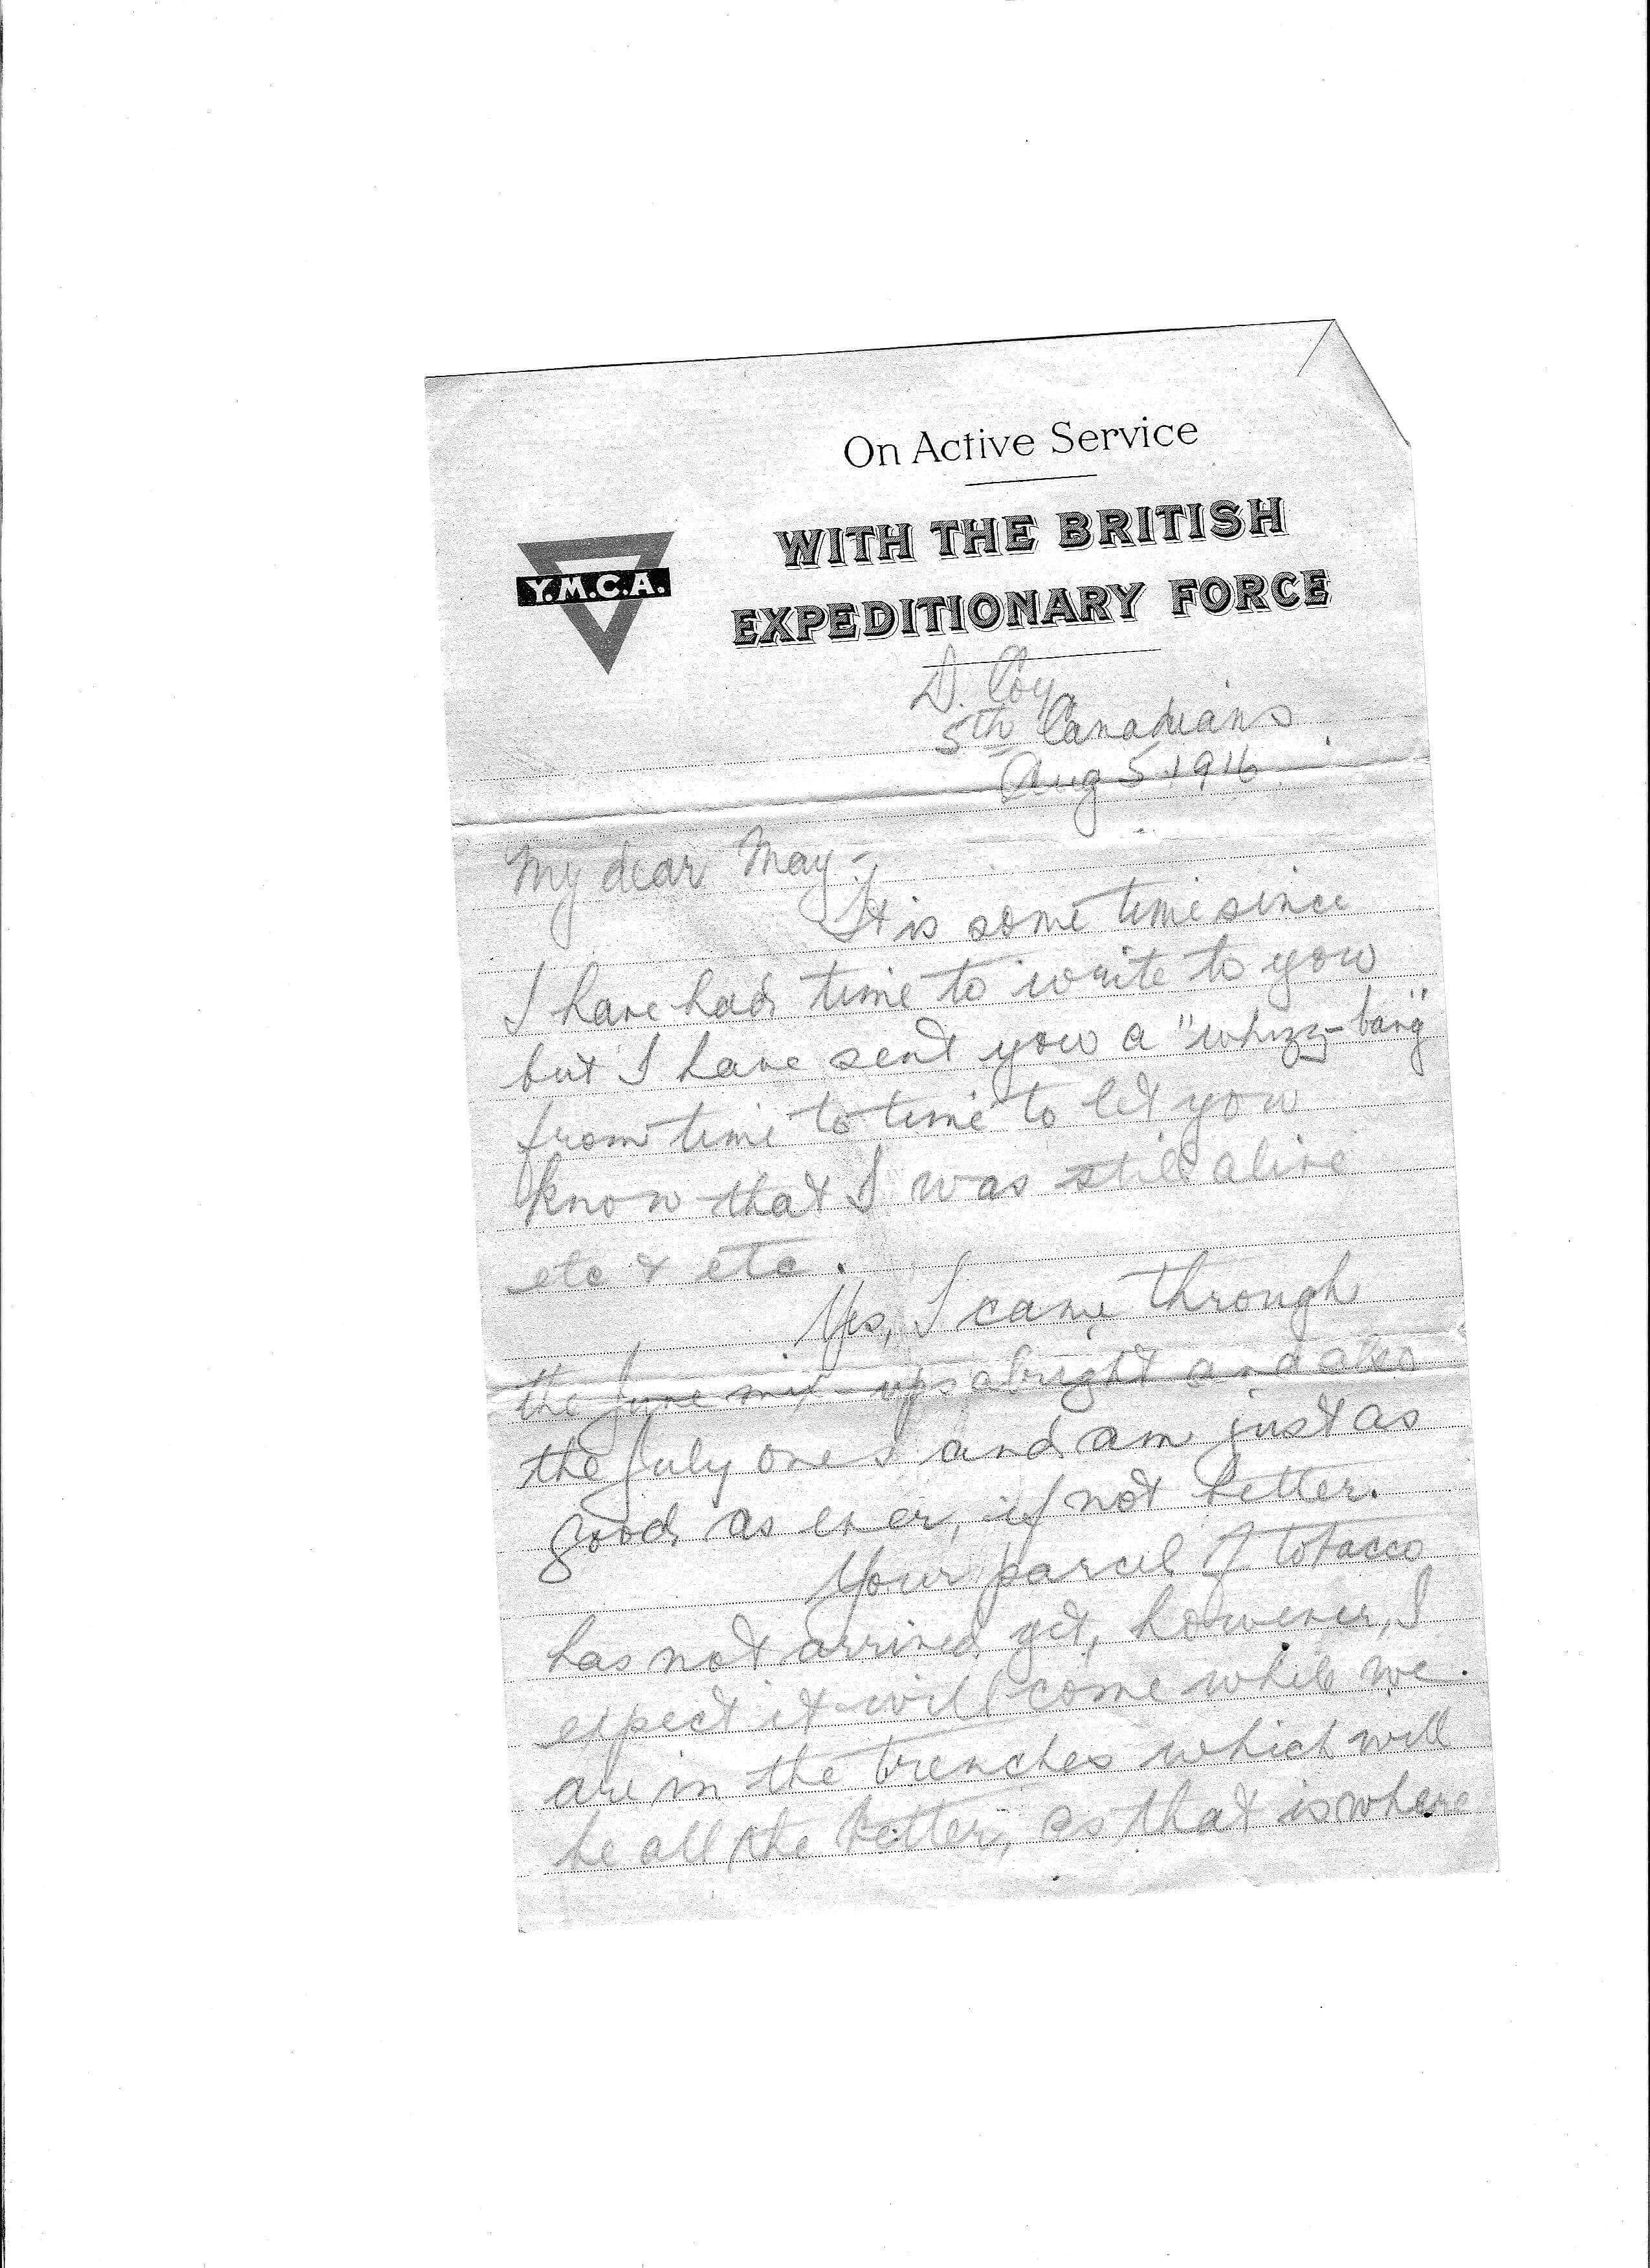 On Active Service
WITH THE BRITISH
EXPEDITIONARY FORCE
Y.M.C.A.
D. Coy.
5th Canadians
Aug 5 1916
My dear May -
It is some time since
I have had time to write to you
but I have sent you a "whizz-bang"
from time to time to let you
know that I was still alive
etc & etc.
Yes, I came through
the June mix-ups alright and also
the July ones and am just as
good as ever, if not better.
Your parcel of tobacco
has not arrived yet, however, I
expect it will come while we
are in the trenches which will
be all the better, as that is where